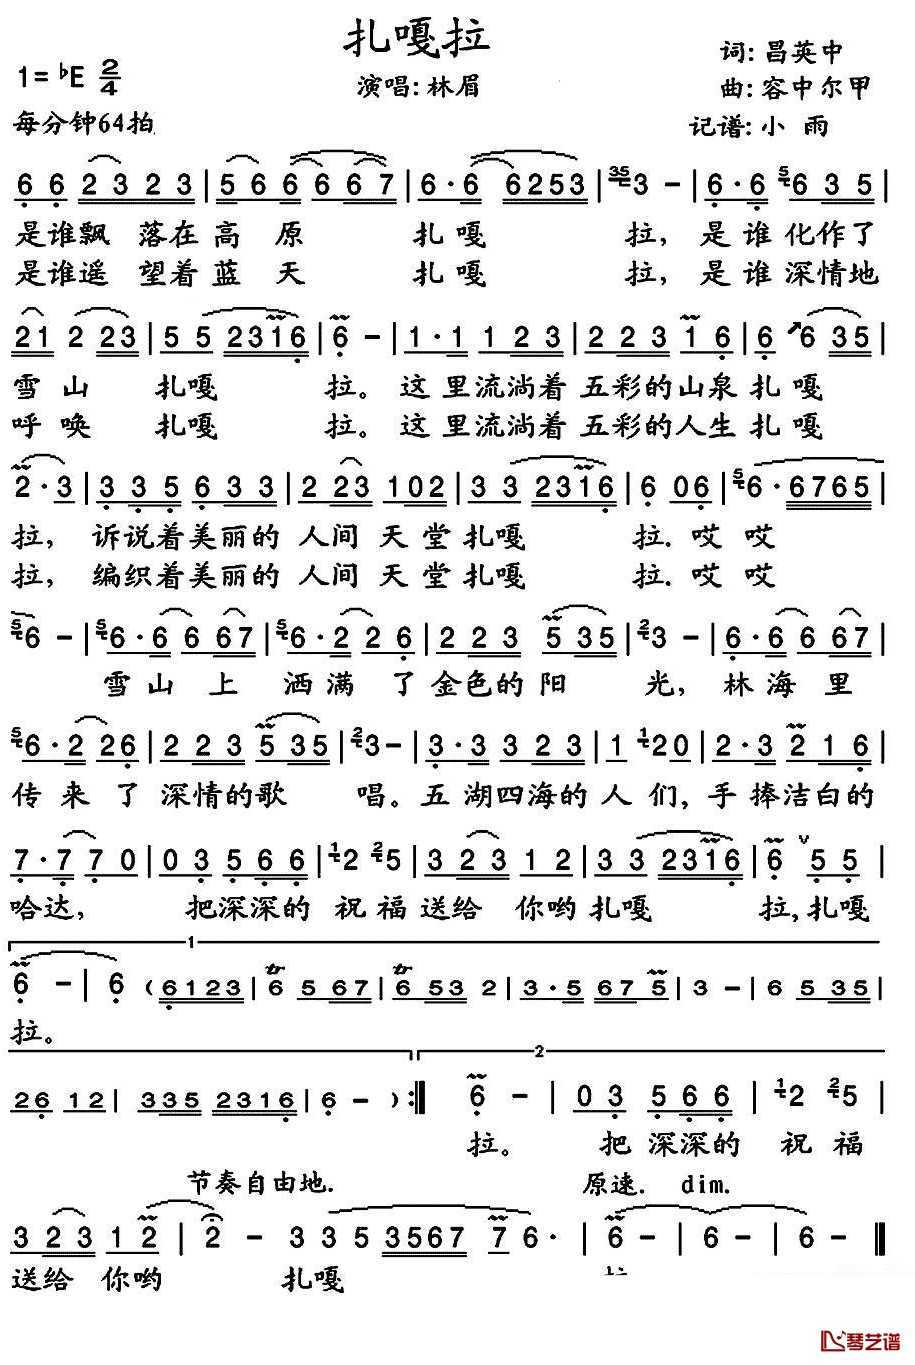 扎嘎拉
1=♭E 2/4
演唱:林眉
词:昌英中
曲:容中尔甲
每分钟64拍
记谱:小雨
6 6 2 3 2 3 | 5 6 6 6 6 7 | 6·6 6253 | 35 3 - | 6·6 5 6 3 5 |
是谁飘 落在高 原 扎嘎 拉, 是谁化作了
是谁遥 望着蓝 天 扎嘎 拉, 是谁深情地
21 2 23 | 5 5 2316 | 6 - | 1·1 1 2 3 | 2 2 3 1 6 | 6 6 35 |
雪山 扎嘎 拉。这里流淌着五彩的山泉扎嘎
呼唤 扎嘎 拉。这里流淌着五彩的人生扎嘎
2·3 | 3 3 5 6 3 3 | 2 23 102 | 3 3 2316 | 6 06 | 5 6·6765 |
拉, 诉说着美丽的人间天堂扎嘎 拉.哎哎
拉, 编织着美丽的人间天堂扎嘎 拉.哎哎
5 6 - | 5 6·6 6 67 | 5 6·2 2 6 | 2 2 3 5 35 | 2 3 - | 6·6 6 67 |
雪山上洒满了金色的阳 光, 林海里
5 6·2 26 | 2 2 3 5 35 | 2 3 - | 3·3 3 2 3 | 1 1 20 | 2·3 2 1 6 |
传来了深情的歌 唱。五湖四海的人们,手捧洁白的
7·7 7 0 | 0 3 5 6 6 | 1 2 2 5 | 3 23 1 2 | 3 3 2316 | 6 v 5 5 |
哈达, 把深深的祝福送给 你哟扎嘎 拉,扎嘎
1
6 - | 6 (6123 | 6 5 67 | 6 53 2 | 3·5 67 5 | 3 - | 6 5 35 |
拉。
2
26 12 | 335 2316 | 6 - ) :‖ 6 - | 0 3 5 6 6 | 1 2 2 5 |
拉。 把深深的 祝福
节奏自由地. 原速. dim.
3 23 1 2 | 2 - 3 3 5 3567 7 6· | 6 - | 6 - | 6 - ‖
送给 你哟 扎嘎
琴艺谱